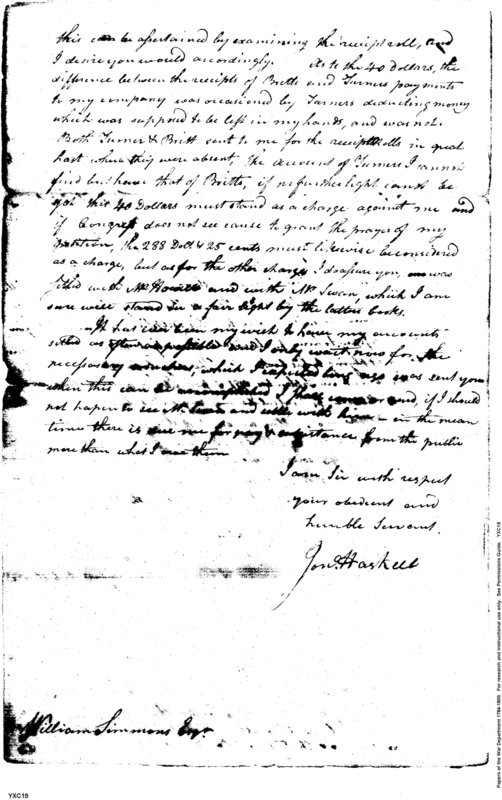 this can be assertained by examining the receipt roll, and
I desire you would accordingly. As to the 40 Dollars, the
difference between the receipts of Britts and Turners payments
to my company was occasioned by Turners deducting money
which was supposed to be left in my hands, and was not.
Both Turner & Britt sent to me for the receipt rolls in great
hast when they were absent, the account of Turners I cannot
find but have that of Britts, if no further light cannot be
got this 40 Dollars must stand as a charge against me and
if Congress does not see cause to grant the prayer of my
petition, the 288 Doll & 25 cents must likewise be considered
as a charge, but as for the other charge I do assure you, was
settled with Mr Howell and with Mr Swan, which I am
sure will stand in a fair light by the letters books.
It has been my wish to have my accounts
settled as often as possible and I only wait now for the
necessary vouchers, which I expected long ago was sent you
when this can be accomplished I shall come or send, if I should
not hapen to see Mr Swan and settle with him - in the mean
time there is due me for pay & subsistance from the public
more than what I owe them
I am Sir with respect
your obedient and
humble Servant.
Jona Haskell
William Simmons Esqr
YXC19
Papers of the War Department 1784-1800. For research and instructional use only. See Permissions Guide. YXC19